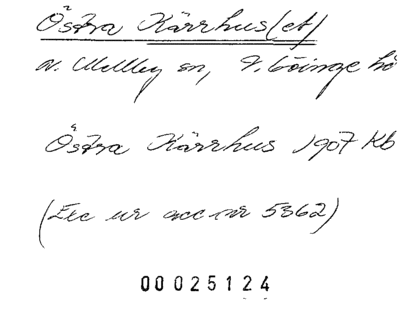 Östra Kärrhus(et)
N. Mellby sn, V. Göinge hd
Östra Kärrhus 1907 Kb
(Exc ur acc nr 5362)
00025124